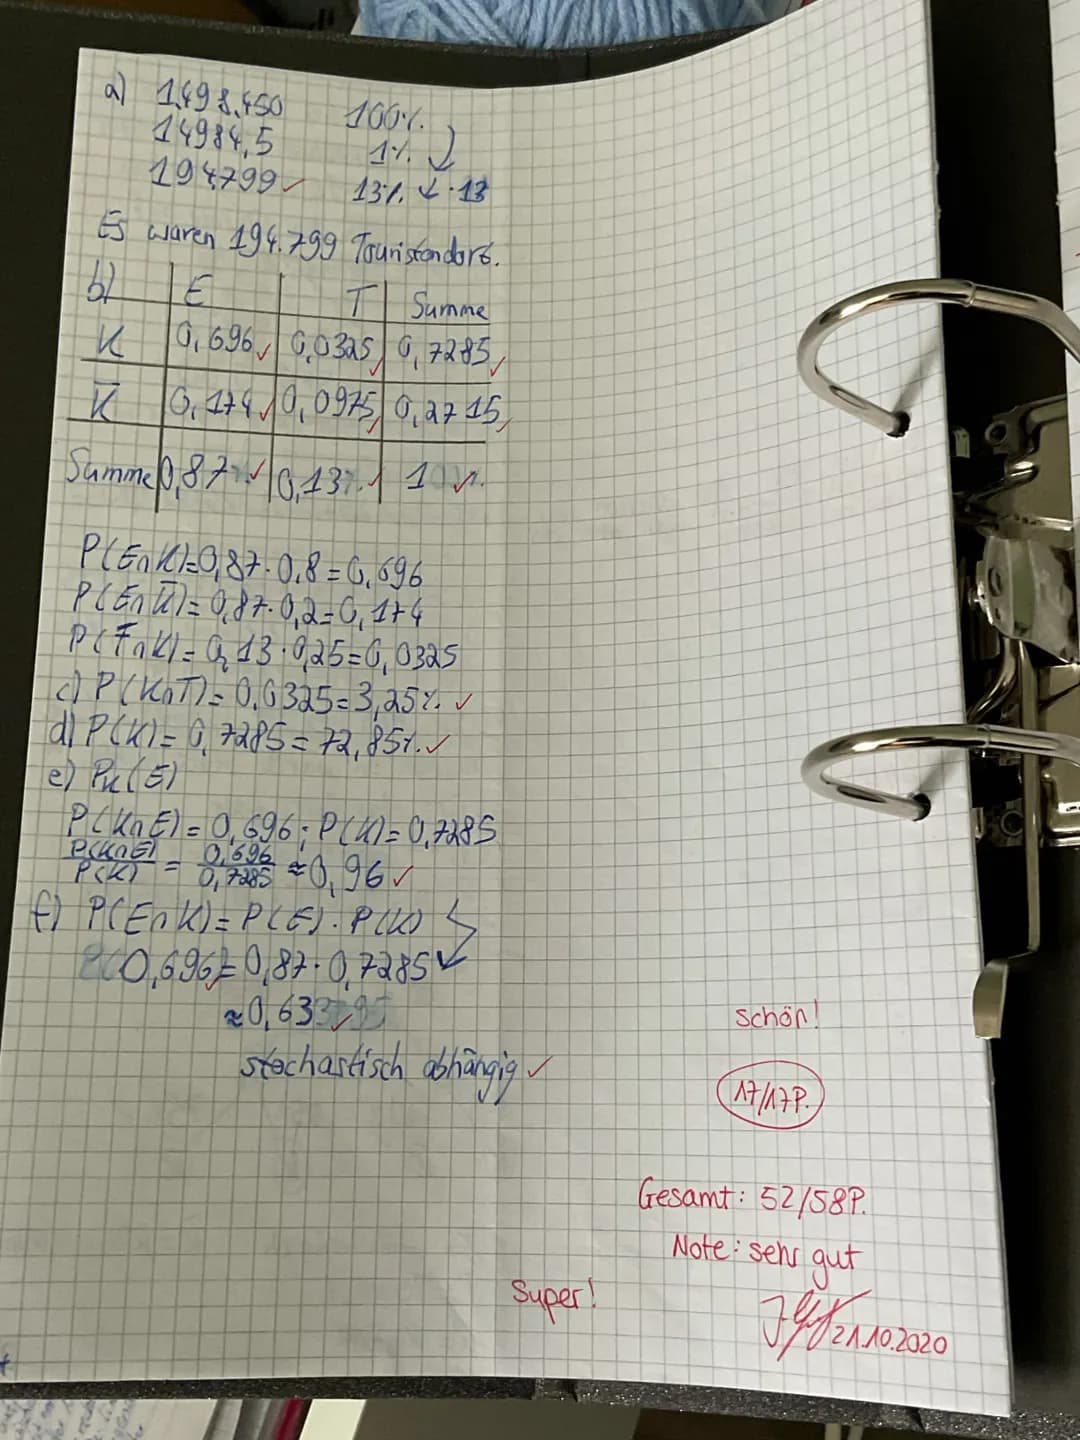 a) 1.498.450 100%
14984,5 1%
194799 13% · 13
Es waren 194.799 Touristandorf.
b) E T Summe
K 0,696 0,0325 0,7285
K̅ 0,174 0,0975 0,2715
Summe 0,87 0,13 1
P(E∩K)=0,87·0,8=0,696
P(E∩K̅)=0,87·0,2=0,174
P(T∩K)=0,13·0,25=0,0325
c) P(K∩T)=0,0325=3,25%
d) P(K)=0,7285=72,85%
e) Pₖ(E)
P(K∩E)=0,696; P(K)=0,7285
P(K∩E)/P(K) = 0,696/0,7285 ≈0,96
f) P(E∩K)=P(E)·P(K)
0,696=0,87·0,7285
≈0,633
stochastisch abhängig
schön!
17/17P.
Gesamt: 52/58P.
Note: sehr gut
Super!
21.10.2020